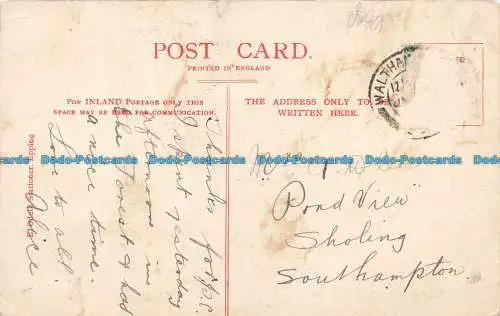 POST CARD.
PRINTED IN ENGLAND
FOR INLAND POSTAGE ONLY THIS
SPACE MAY BE USED FOR COMMUNICATION.
THE ADDRESS ONLY TO BE
WRITTEN HERE.
WALTHA
12
Thanks for p.c.
I spent yesterday
afternoon in
the Forest & had
a nice time.
Love to all.
Alice
Pond View
Sholing
Southampton.
Epping
Dodo-Postcards Dodo-Postcards Dodo-Postcards Dodo-Postcards Dodo-Postcards